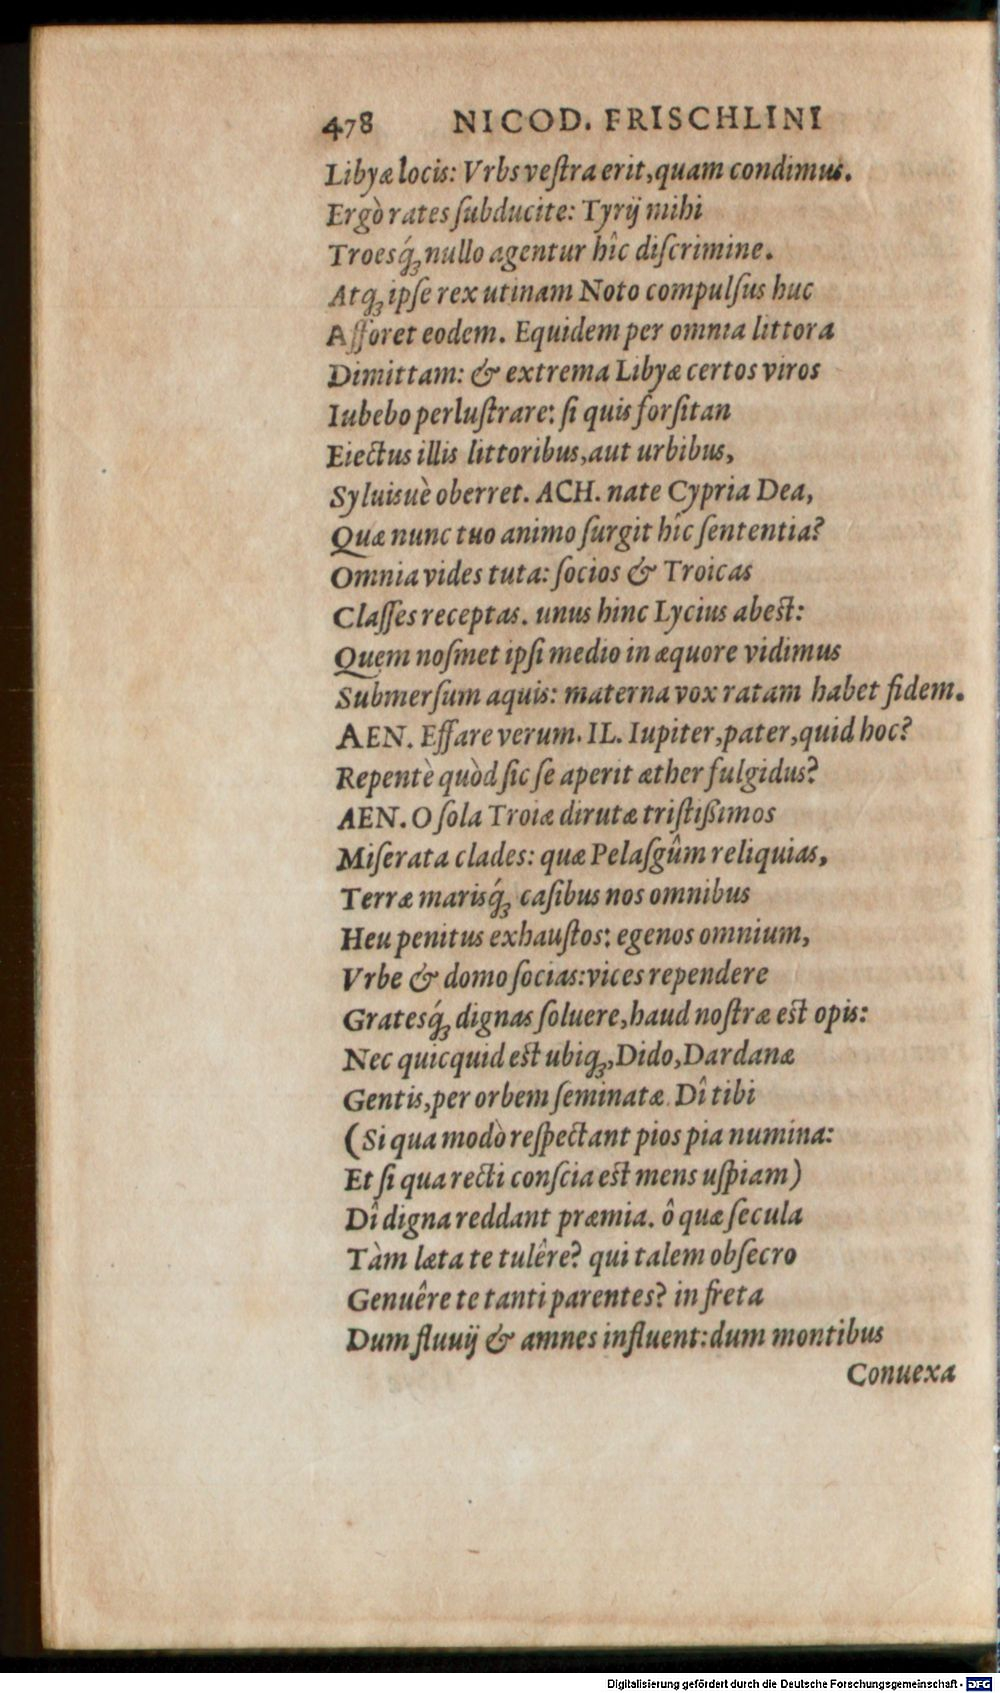 478 NICOD. FRISCHLINI
Libyæ locis: Vrbs veſtra erit, quam condimus.
Ergò rates ſubducite: Tyrij mihi
Troesq́ꝫ nullo agentur hîc diſcrimine.
Atqꝫ ipſe rex utinam Noto compulſus huc
Afforet eodem. Equidem per omnia littora
Dimittam: & extrema Libyæ certos viros
Iubebo perluſtrare: ſi quis forſitan
Eiectus illis littoribus, aut urbibus,
Syluisuè oberret. ACH. nate Cypria Dea,
Quæ nunc tuo animo ſurgit hîc ſententia?
Omnia vides tuta: ſocios & Troicas
Claſſes receptas. unus hinc Lycius abeſt:
Quem noſmet ipſi medio in æquore vidimus
Submerſum aquis: materna vox ratam habet fidem.
AEN. Effare verum. IL. Iupiter, pater, quid hoc?
Repentè quòd ſic ſe aperit æther fulgidus?
AEN. O ſola Troiæ dirutæ triſtißimos
Miſerata clades: quæ Pelaſgûm reliquias,
Terræ marisq́ꝫ caſibus nos omnibus
Heu penitus exhauſtos: egenos omnium,
Vrbe & domo ſocias: vices rependere
Gratesq́ꝫ dignas ſoluere, haud noſtræ eſt opis:
Nec quicquid eſt ubiqꝫ, Dido, Dardanæ
Gentis, per orbem ſeminatæ. Dî tibi
(Si qua modò reſpectant pios pia numina:
Et ſi qua recti conſcia eſt mens uſpiam)
Dî digna reddant præmia. ô quæ ſecula
Tàm læta te tulêre? qui talem obſecro
Genuêre te tanti parentes? in freta
Dum fluuij & amnes influent: dum montibus
Conuexa
Digitalisierung gefördert durch die Deutsche Forschungsgemeinschaft - DFG